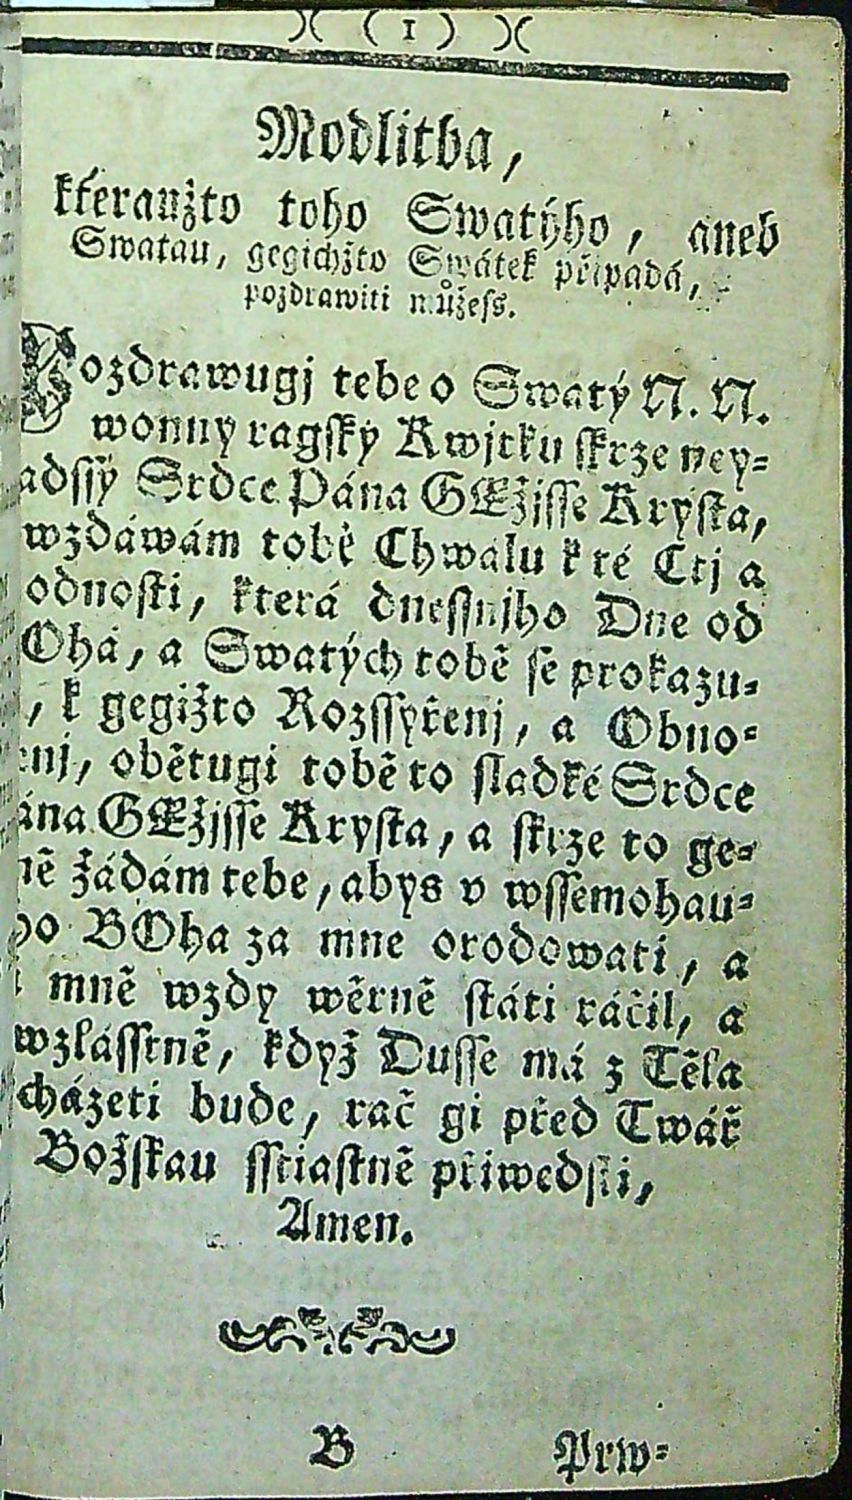 )( (1) )(
Modlitba,
kteraužto toho Swatýho, aneb
Swatau, gegichžto Swátek připadá,
pozdrawiti můžess.
Pozdrawugj tebe o Swatý N. N.
wonný ragský Kwjtku skrze ney=
adssý Srdce Pána GEžjsse Krysta,
wzdáwám tobě Chwálu k té Ctj a
odnosti, která dnessnjho Dne od
Oha, a Swatých tobě se prokazu=
, k gegižto Rozssyřenj, a Obno=
enj, obětugi tobě to sladké Srdce
ána GEžjsse Krysta, a skrze to ge=
ně žádám tebe, abys v wssemohau=
ho BOha za mne orodowati, a
i mně wzdy wěrně státi ráčil, a
wzlásstně, když Dusse má z Těla
cházeti bude, rač gi před Twář
Božskau sstiastně přiwedsti,
Amen.
B Prw=